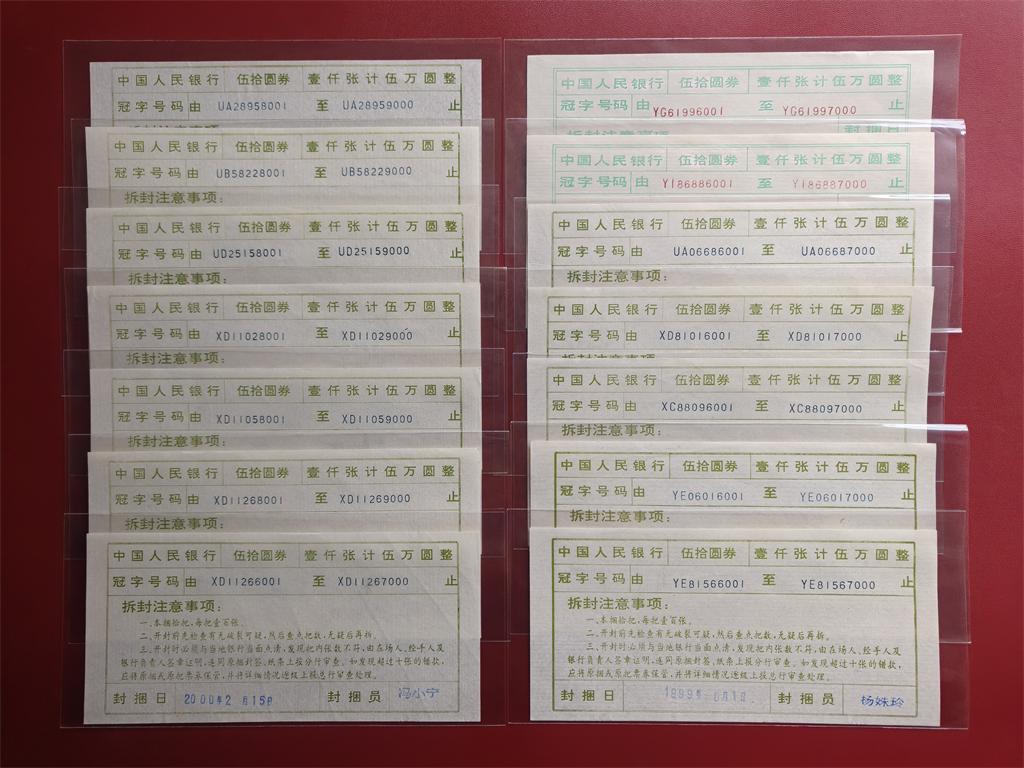 中国人民银行 伍拾圆券 壹仟张计伍万圆整
冠字号码由 UA28958001 至 UA28959000 止
拆封注意事项:
中国人民银行 伍拾圆券 壹仟张计伍万圆整
冠字号码由 UB58228001 至 UB58229000 止
拆封注意事项:
中国人民银行 伍拾圆券 壹仟张计伍万圆整
冠字号码由 UD25158001 至 UD25159000 止
拆封注意事项:
中国人民银行 伍拾圆券 壹仟张计伍万圆整
冠字号码由 XD11028001 至 XD11029000 止
拆封注意事项:
中国人民银行 伍拾圆券 壹仟张计伍万圆整
冠字号码由 XD11058001 至 XD11059000 止
拆封注意事项:
中国人民银行 伍拾圆券 壹仟张计伍万圆整
冠字号码由 XD11268001 至 XD11269000 止
拆封注意事项:
中国人民银行 伍拾圆券 壹仟张计伍万圆整
冠字号码由 XD11266001 至 XD11267000 止
拆封注意事项:
一、本捆拾把,每把壹百张。
二、开封前先检查有无破裂可疑,然后查点把数,无疑后再拆。
三、开封时必须与当地银行当面点清,发现把内张数不符,由在场人、经手人及
银行负责人签章证明,连同原捆封签、纸条上报分行审查。如发现超过十张的错款,
应将原捆或原把票券保管,并将详细情况逐级上报总行审查处理。
封捆日 2000年2月15日 封捆员 冯小宁
中国人民银行 伍拾圆券 壹仟张计伍万圆整
冠字号码由 YG61996001 至 YG61997000 止
拆封注意事项: 封捆日
中国人民银行 伍拾圆券 壹仟张计伍万圆整
冠字号码由 YI86886001 至 YI86887000 止
中国人民银行 伍拾圆券 壹仟张计伍万圆整
冠字号码由 UA06686001 至 UA06687000 止
拆封注意事项:
中国人民银行 伍拾圆券 壹仟张计伍万圆整
冠字号码由 XD81016001 至 XD81017000 止
拆封注意事项:
中国人民银行 伍拾圆券 壹仟张计伍万圆整
冠字号码由 XC88096001 至 XC88097000 止
拆封注意事项:
中国人民银行 伍拾圆券 壹仟张计伍万圆整
冠字号码由 YE06016001 至 YE06017000 止
拆封注意事项:
中国人民银行 伍拾圆券 壹仟张计伍万圆整
冠字号码由 YE81566001 至 YE81567000 止
拆封注意事项:
一、本捆拾把,每把壹百张。
二、开封前先检查有无破裂可疑,然后查点把数,无疑后再拆。
三、开封时必须与当地银行当面点清,发现把内张数不符,由在场人、经手人及
银行负责人签章证明,连同原捆封签、纸条上报分行审查。如发现超过十张的错款,
应将原捆或原把票券保管,并将详细情况逐级上报总行审查处理。
封捆日 1999年 封捆员 杨姝玲